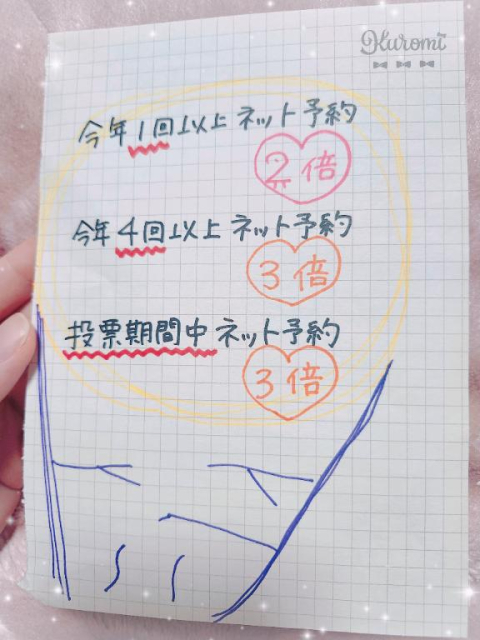 Kuromi
今年1回以上ネット予約
2倍
今年4回以上ネット予約
3倍
投票期間中ネット予約
3倍